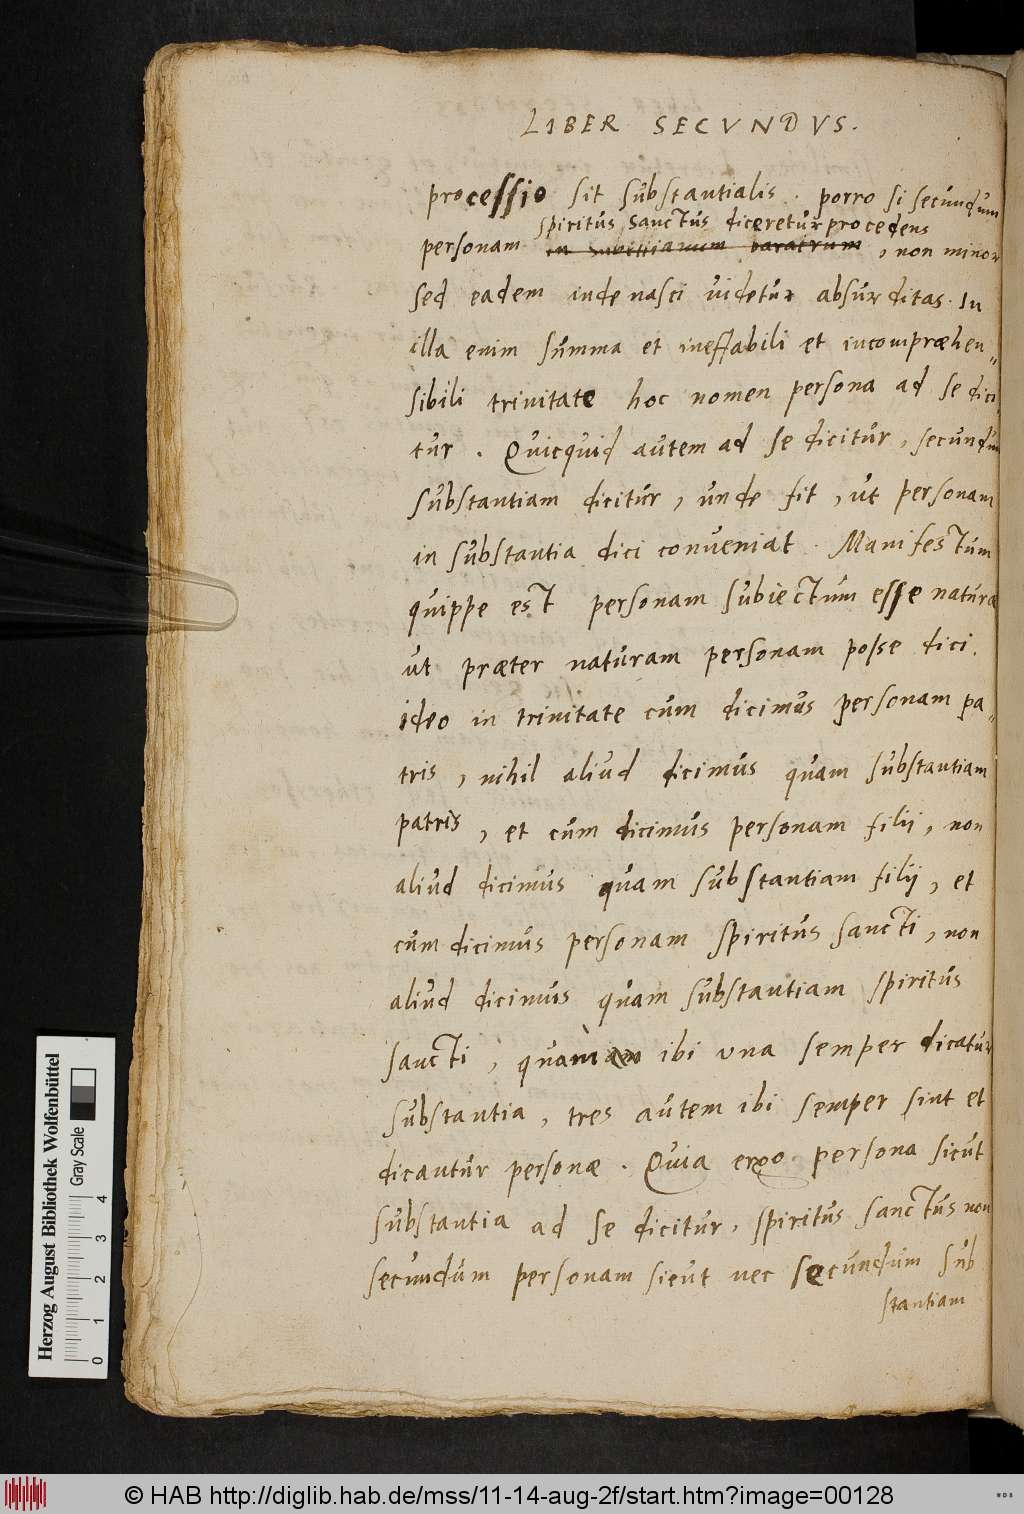 LIBER SECVNDVS.
processio sit substantialis. porro si secundum
spiritus Sanctus diceretur procedens
personam in baratrum, non minor
sed eadem inde nasci videtur absurditas. In
illa enim summa et ineffabili et incompræhen„
sibili trinitate hoc nomen persona ad se dici„
tur. Quicquid autem ad se dicitur, secundum
substantiam dicitur, unde fit, ut personam
in substantia dici conveniat. Manifestum
quippe est personam subiectum esse naturæ
ut præter naturam personam posse dici.
ideo in trinitate cum dicimus personam pa„
tris, nihil aliud dicimus quam substantiam
patris, et cum dicimus personam filii, non
aliud dicimus quam substantiam filij, et
cum dicimus personam spiritus sancti, non
aliud dicimus quam substantiam spiritus
sancti, ibi una semper dicatur
substantia, tres autem ibi semper sint et
dicantur personæ. Quia ergo persona sicut
substantia ad se dicitur, spiritus sanctus non
secundum personam sicut nec secundum sub
stantiam
Herzog August Bibliothek Wolfenbüttel
Gray Scale
0 1 2 3 4
© HAB http://diglib.hab.de/mss/11-14-aug-2f/start.htm?image=00128